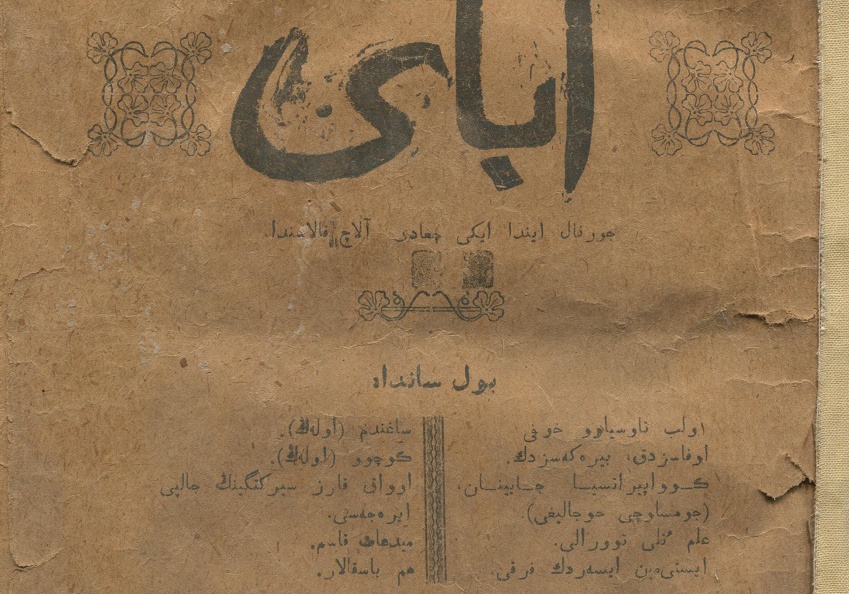 اباي
جورنال ايندا ايكى چعادى آلاچ قالاسندا.
بول ساندا:
اولب ناوسياوو خوفى
اوفاسزدق، بيرەكەسزدك.
كووپيرانسيا جابينان،
(جومساوچى خوجاليغى)
علم تىلى توورالى.
ايسنىمەن ايسەردك فرقى.
ساغندم (اولەڭ).
كوچوو (اولەڭ).
ارواق قارز سيركتگينڭ جالپى
ايرەجەسى.
ميدهات قاسم.
هم باسقالار.